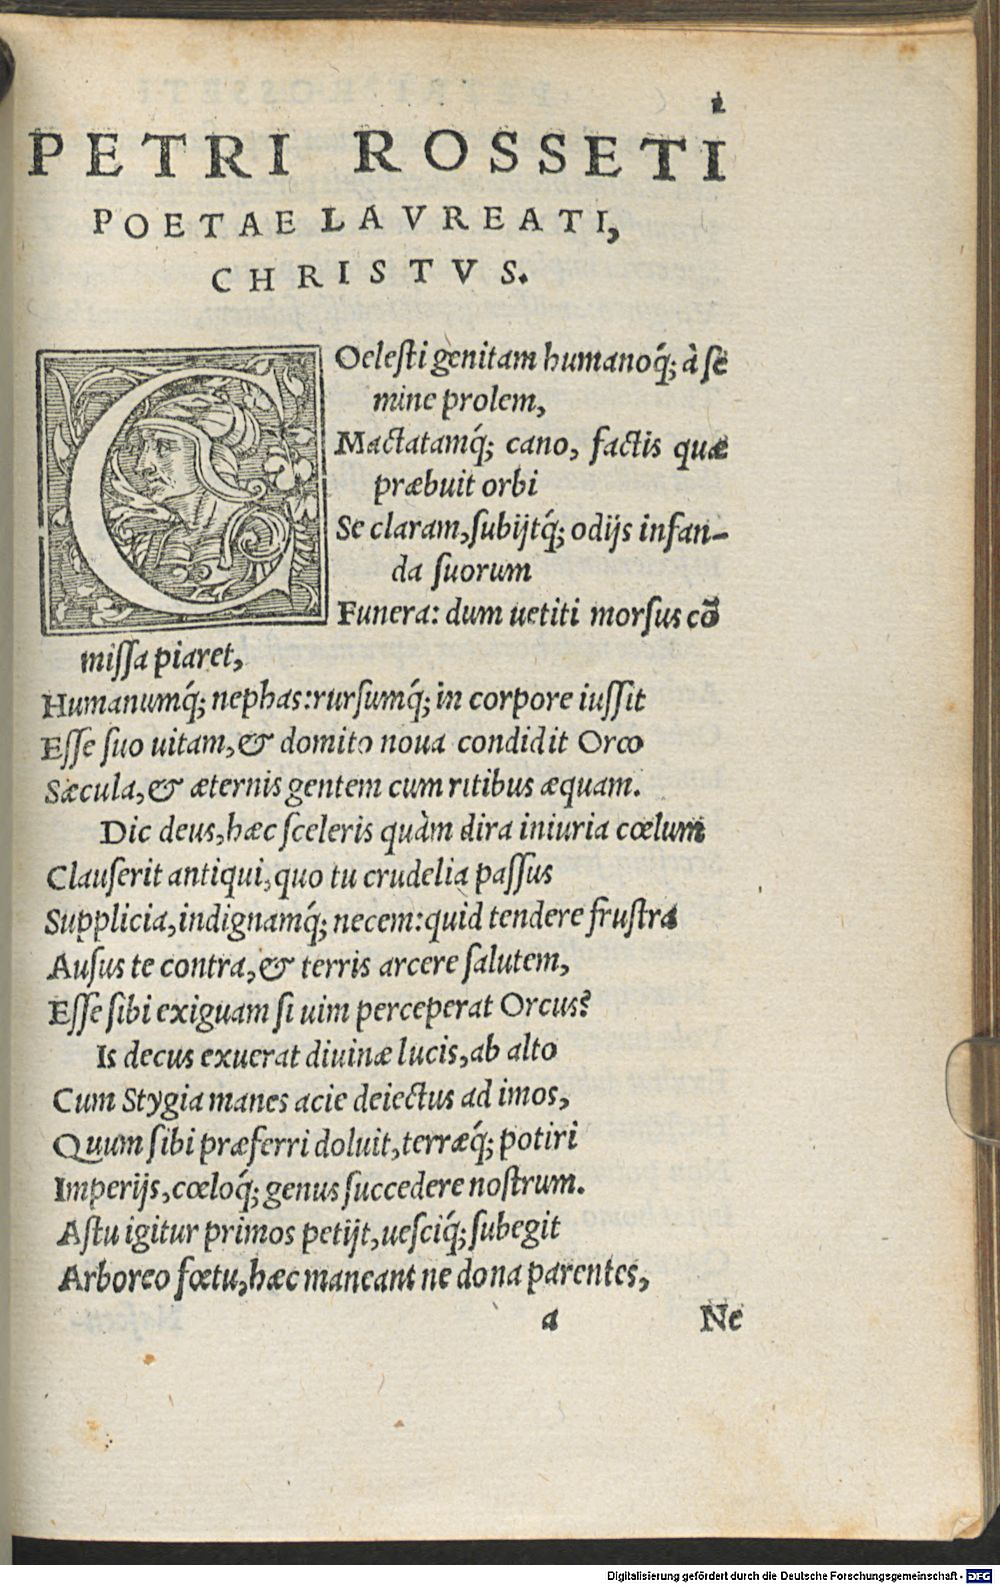 1
PETRI ROSSETI
POETAE LAVREATI,
CHRISTVS.
COeleſti genitam humanoq́; à ſe
mine prolem,
Mactatamq́; cano, factis quæ
præbuit orbi
Se claram, ſubijtq́; odijs infan-
da ſuorum
Funera: dum uetiti morſus cõ
miſſa piaret,
Humanumq́; nephas: rurſumq́; in corpore iuſſit
Eſſe ſuo uitam, & domito noua condidit Orco
Sæcula, & æternis gentem cum ritibus æquam.
Dic deus, hæc ſceleris quàm dira iniuria cœlum
Clauſerit antiqui, quo tu crudelia paſſus
Supplicia, indignamq́; necem: quid tendere fruſtra
Auſus te contra, & terris arcere ſalutem,
Eſſe ſibi exiguam ſi uim perceperat Orcus?
Is decus exuerat diuinæ lucis, ab alto
Cum Stygia manes acie deiectus ad imos,
Quum ſibi præferri doluit, terræq́; potiri
Imperijs, cœloq́; genus ſuccedere noſtrum.
Aſtu igitur primos petijt, ueſciq́; ſubegit
Arboreo fœtu, hæc maneant ne dona parentes,
a Ne
Digitalisierung gefördert durch die Deutsche Forschungsgemeinschaft - DFG